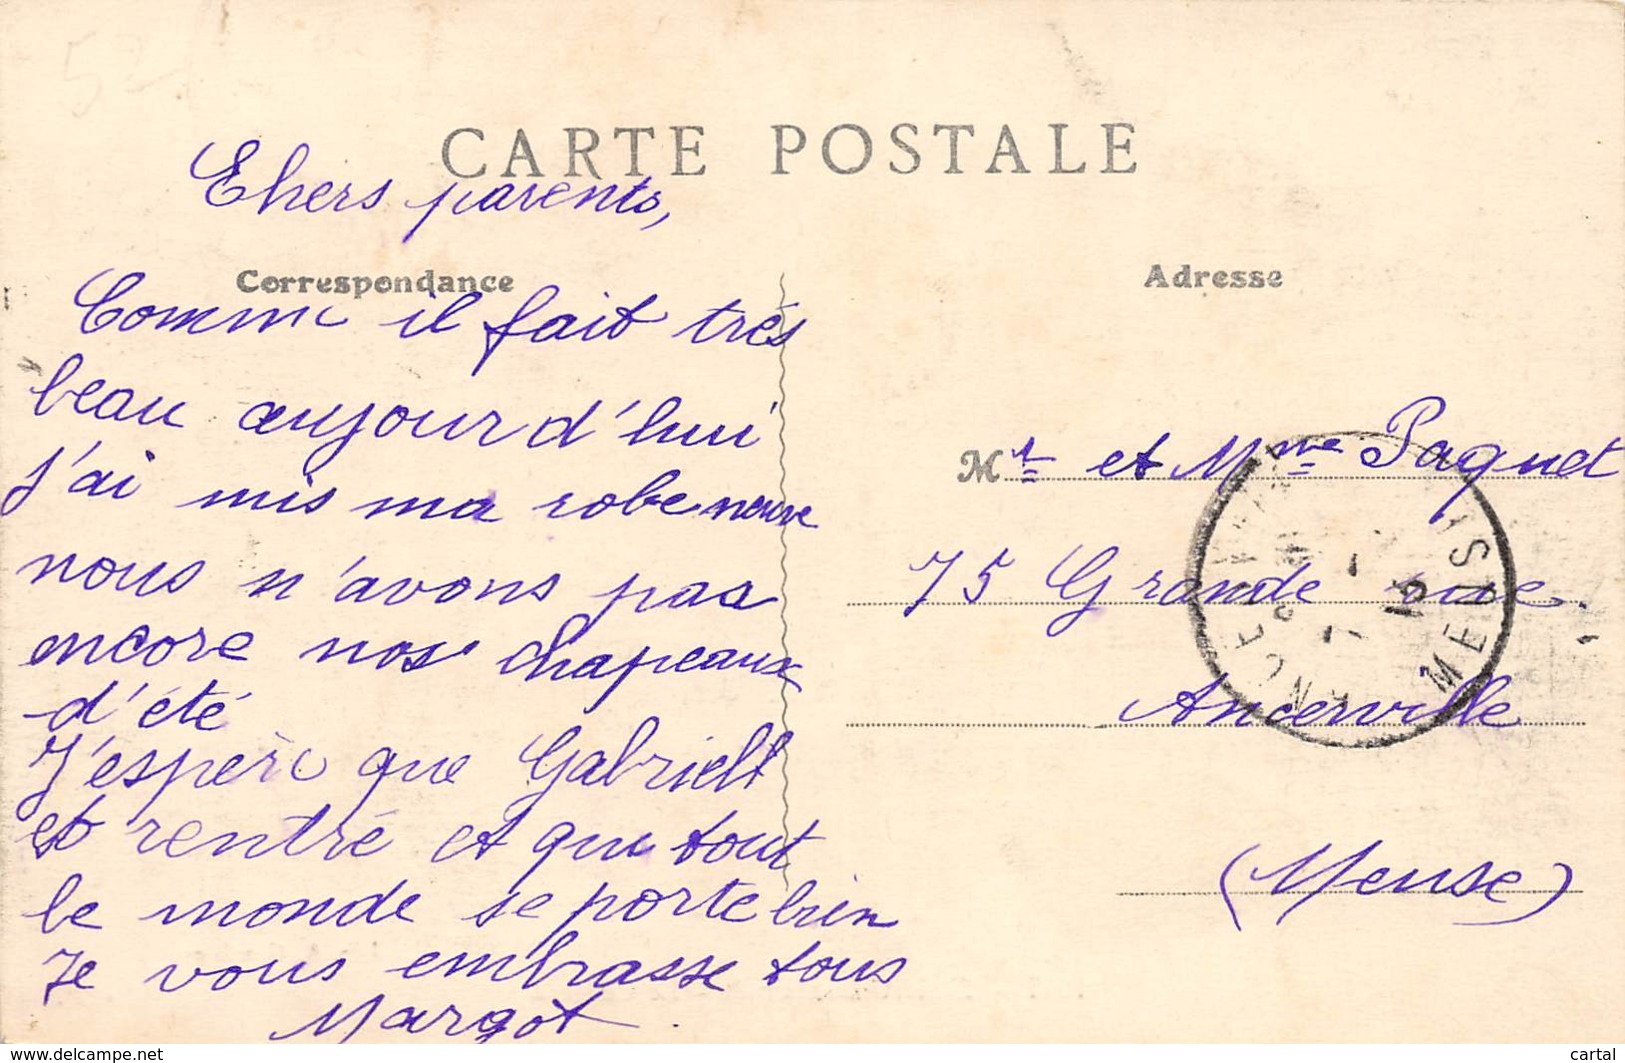 52
CARTE POSTALE
Chers parents,
Correspondance
Comme il fait très
beau aujourd'hui
j'ai mis ma robe neuve
nous n'avons pas
encore nos chapeaux
d'été
J'espère que Gabriell
est rentré et que tout
le monde se porte bien
Je vous embrasse tous
Margot.
Adresse
Mr et Mme Paquet
75 Grande rue.
Ancerville
(Meuse)
MEUSE
www.delcampe.net
cartal